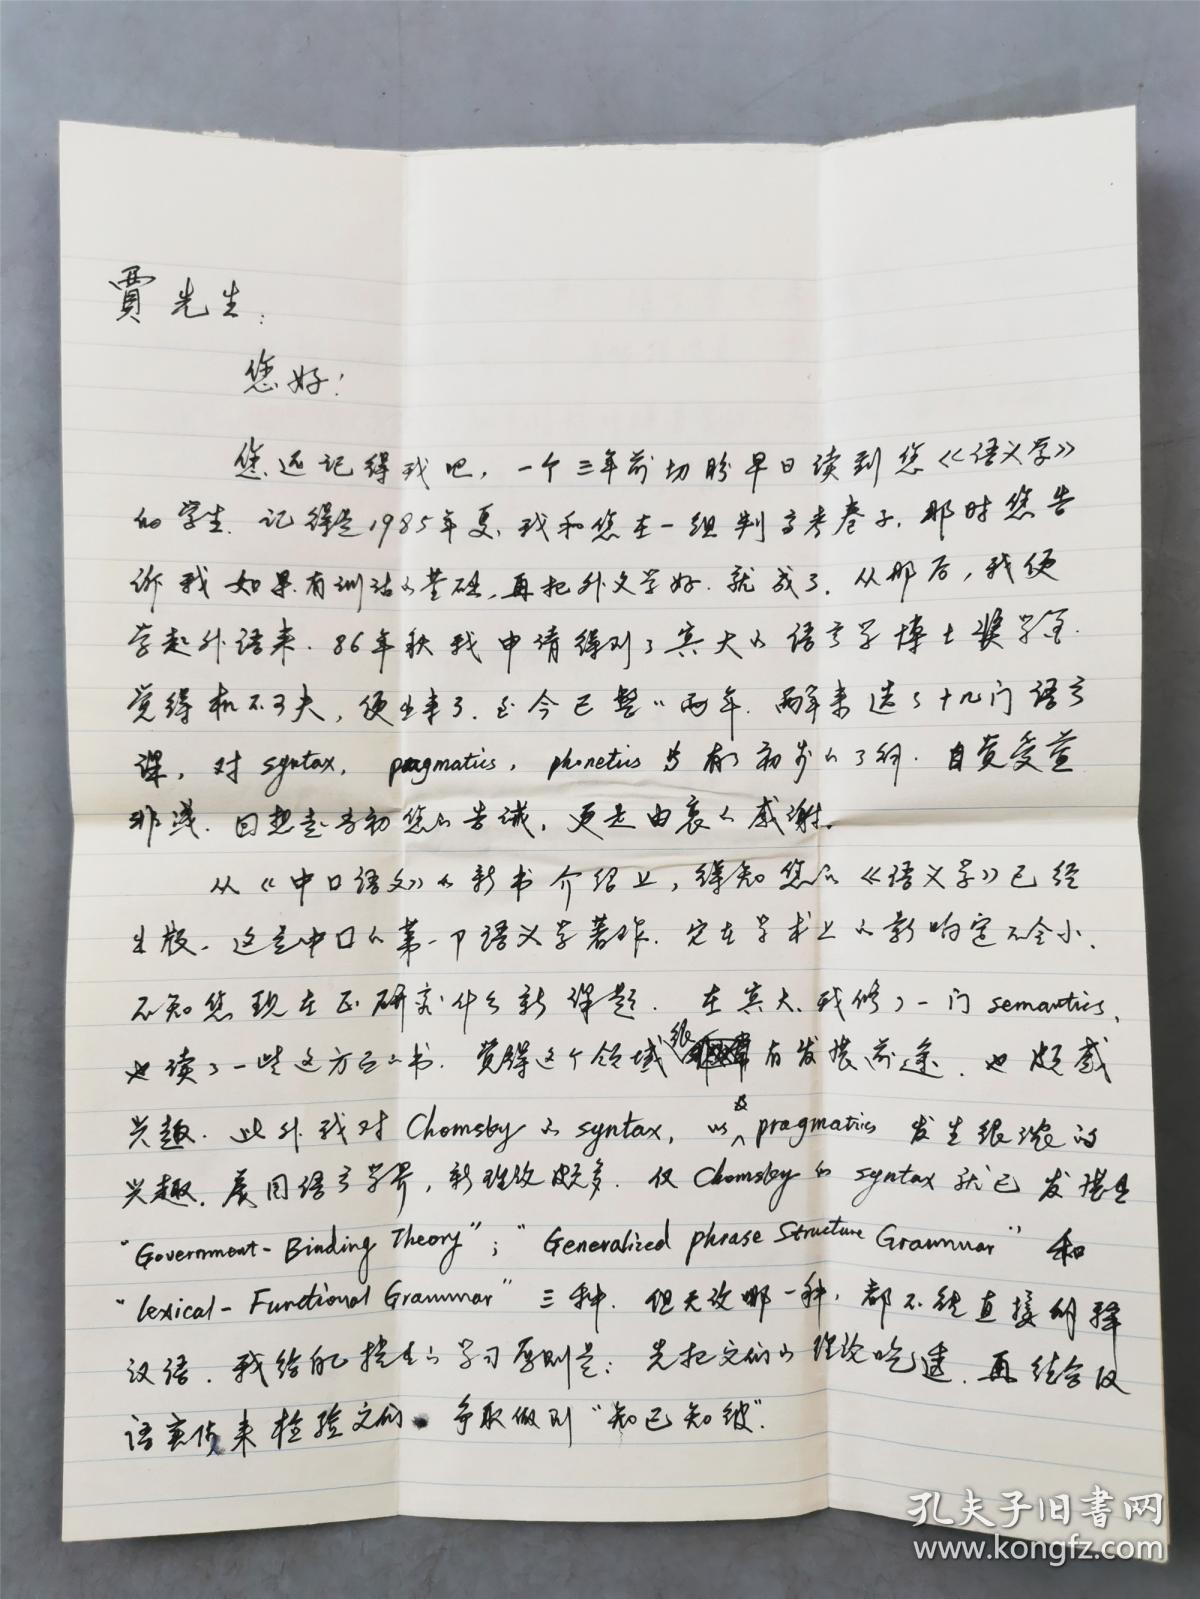 賈先生：
您好！
您还记得我吧，一个三年前切盼早日读到您《语义学》
的学生。记得是1985年夏，我和您在一组判高考卷子，那时您告
诉我如果有训诂的基础，再把外文学好，就成了。从那后，我便
学起外语来。86年秋我申请得到了宾大的语言学博士奖学金，
觉得机不可失，便出来了。至今已整整两年。两年来选了十几门语言
课，对syntax，pragmatics，phonetics 等都有初步的了解。自觉受益
非浅。回想起当初您的告诫，更是由衷的感谢。
从《中国语文》的新书介绍上，得知您的《语义学》已经
出版。这是中国的第一部语义学著作，它在学术上的影响定不会小。
不知您现在正研究什么新课题。在宾大，我修了一门semantics，
也读了一些这方面的书。觉得这个领域很有发展前途，也颇感
兴趣。此外我对Chomsky的syntax，以及pragmatics 发生很浓的
兴趣。美国语言学界，新理论颇多。仅Chomsky的syntax就已发展出
“Government-Binding Theory”；“Generalized phrase Structure Grammar”和
“Lexical-Functional Grammar”三种。但无论哪一种，都不能直接解释
汉语。我给自己提出的学习原则是：先把文们的理论吃透，再结合汉
语实际来检验文们，争取做到“知己知彼”。
孔夫子旧书网
www.kongfz.com